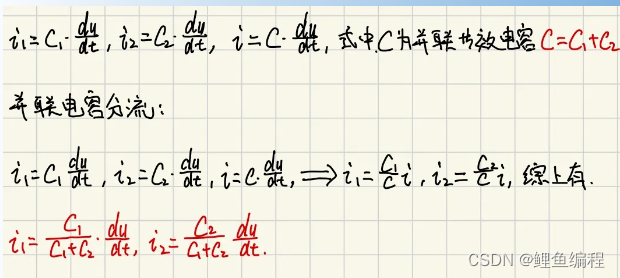 i₁=C₁·du/dt, i₂=C₂·du/dt, i=C·du/dt, 式中,C为并联等效电容C=C₁+C₂
并联电容分流:
i₁=C₁ du/dt, i₂=C₂·du/dt, i=C·du/dt, ⟹ i₁=C₁/C i, i₂=C₂/C i, 综上有.
i₁=C₁/(C₁+C₂)·du/dt, i₂=C₂/(C₁+C₂) du/dt.
CSDN @鲤鱼编程